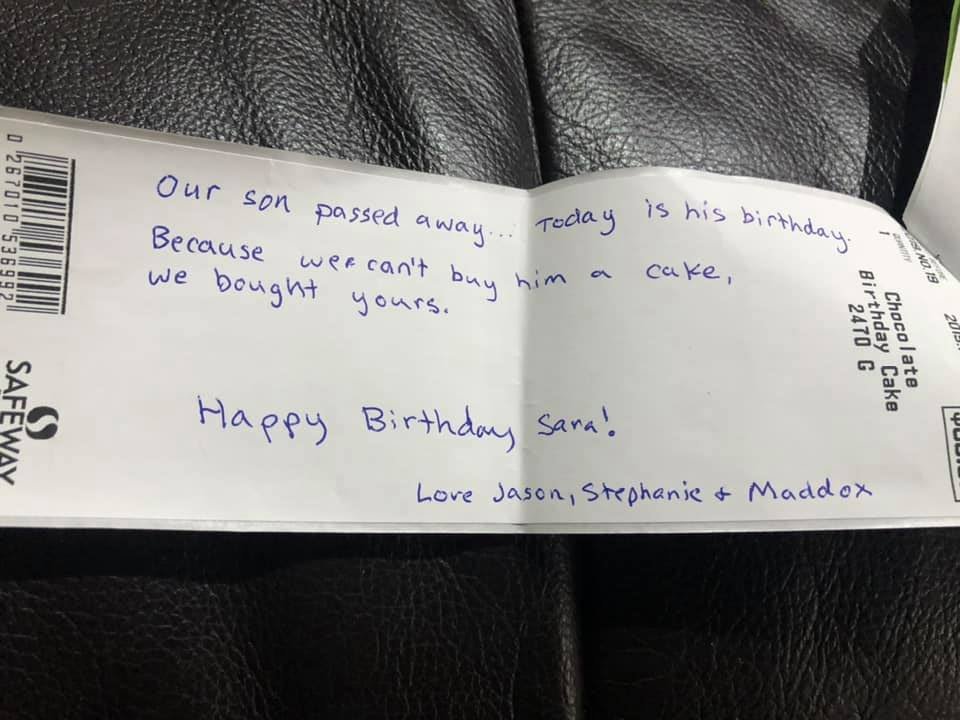 Our son passed away... Today is his birthday.
Because we can't buy him a cake,
we bought yours.
Happy Birthday Sara!
Love Jason, Stephanie + Maddox
0 267010 536992
SAFEWAY
Chocolate
Birthday Cake
2470 G